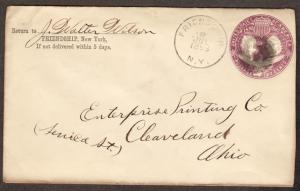 Return to J. Walter Wilson
FRIENDSHIP, New York,
If not delivered within 5 days.
FRIENDSHIP
N.Y.
Enterprise Printing Co.
(Seneca St.) Cleaveland
Ohio